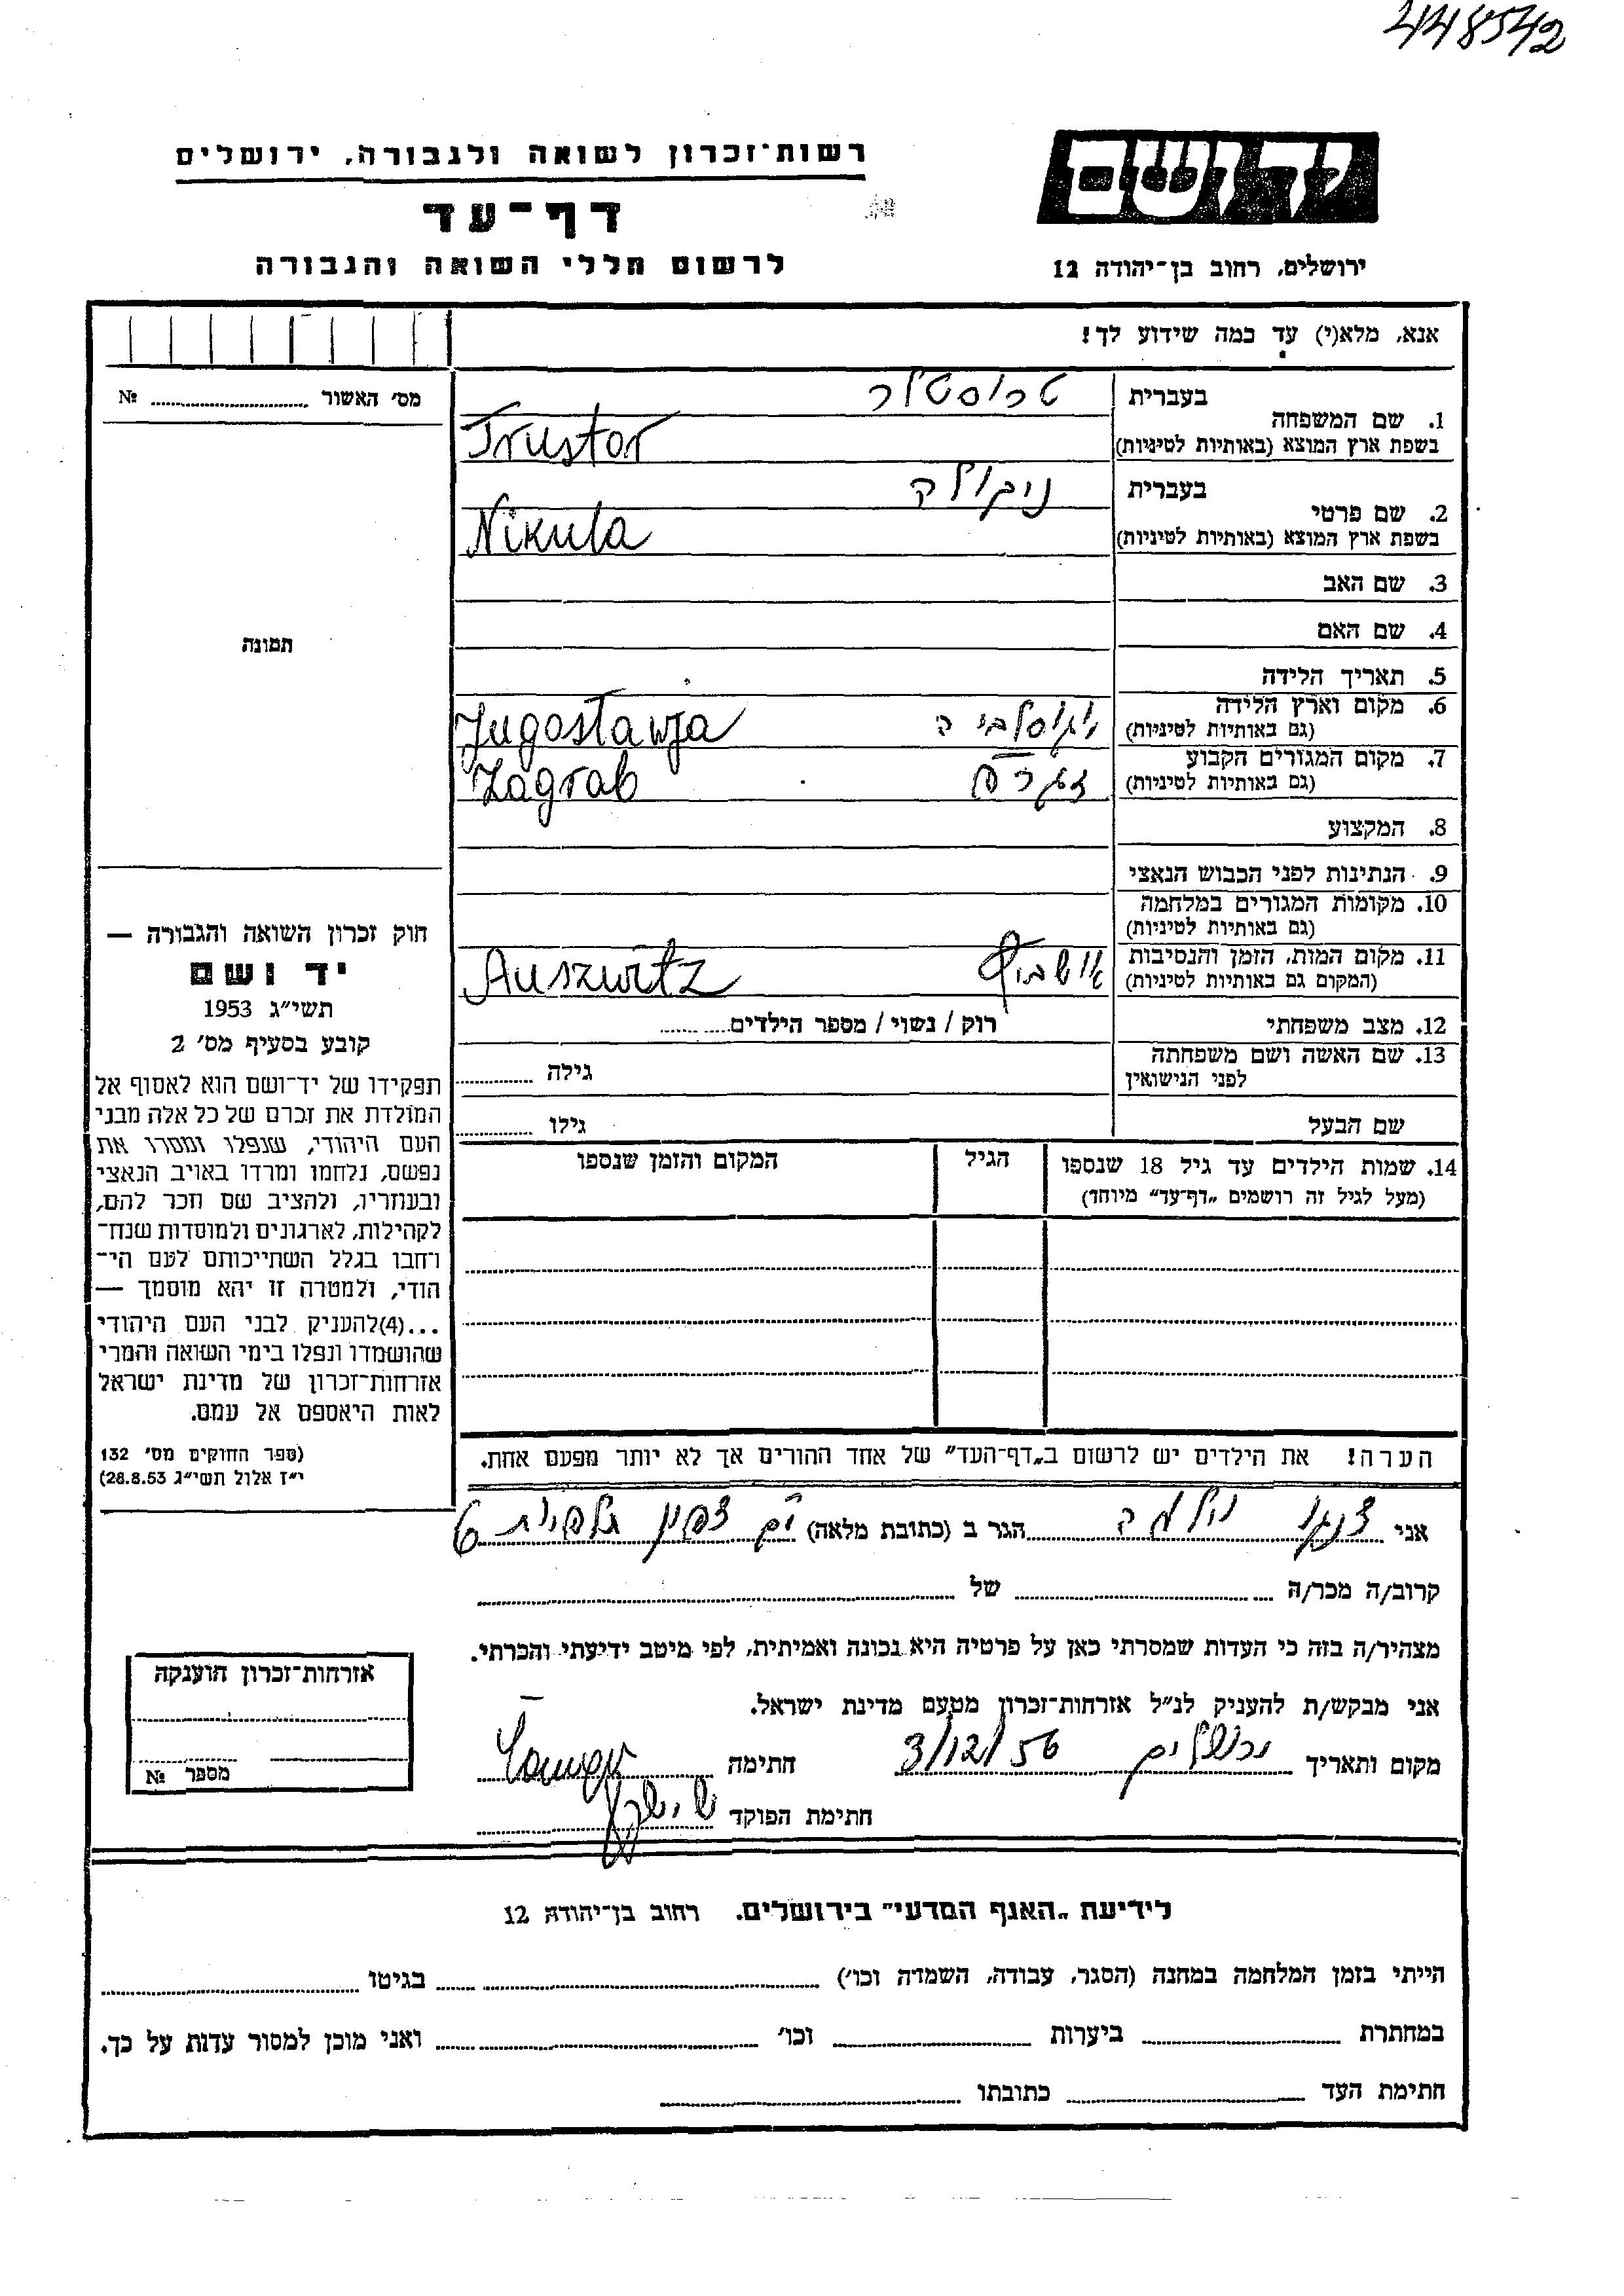 448542
ידושם
ירושלים, רחוב בן-יהודה 12
רשות-זכרון לשואה ולגבורה, ירושלים
דף-עד
לרשום חללי השואה והגבורה
אנא, מלא(י) עד כמה שידוע לך!
מס׳ האשור № ..........
תמונה
1. שם המשפחה
בעברית טרוסטור
בשפת ארץ המוצא (באותיות לטיניות) Trustor
2. שם פרטי
בעברית ניקולה
בשפת ארץ המוצא (באותיות לטיניות) Nikula
3. שם האב
4. שם האם
5. תאריך הלידה
6. מקום וארץ הלידה יוגוסלביה Jugoslawja
(גם באותיות לטיניות)
7. מקום המגורים הקבוע זגרב Zagrab
(גם באותיות לטיניות)
8. המקצוע
9. הנתינות לפני הכבוש הנאצי
10. מקומות המגורים במלחמה
(גם באותיות לטיניות)
11. מקום המות, הזמן והנסיבות אושביץ Auszwitz
(המקום גם באותיות לטיניות)
12. מצב משפחתי רוק / נשוי / מספר הילדים ..........
13. שם האשה ושם משפחתה
לפני הנישואין גילה ..........
שם הבעל גילו ..........
14. שמות הילדים עד גיל 18 שנספו הגיל המקום והזמן שנספו
(מעל לגיל זה רושמים „דף-עד״ מיוחד)
הערה! את הילדים יש לרשום ב„דף-העד״ של אחד ההורים אך לא יותר מפעם אחת.
חוק זכרון השואה והגבורה —
יד ושם
תשי״ג 1953
קובע בסעיף מס׳ 2
תפקידו של יד-ושם הוא לאסוף אל
המולדת את זכרם של כל אלה מבני
העם היהודי, שנפלו ומסרו את
נפשם, נלחמו ומרדו באויב הנאצי
ובעוזריו, ולהציב שם וזכר להם,
לקהילות, לארגונים ולמוסדות שנח-
רחבו בגלל השתייכותם לעם הי-
הודי, ולמטרה זו יהא מוסמך —
...(4)להעניק לבני העם היהודי
שהושמדו ונפלו בימי השואה והמרי
אזרחות-זכרון של מדינת ישראל
לאות היאספם אל עמם.
(ספר החוקים מס׳ 132
י״ז אלול תשי״ג 28.8.53)
אני וילמה הגר ב (כתובת מלאה) תלפיות 6
קרוב/ה מכר/ה .......... של ..........
מצהיר/ה בזה כי העדות שמסרתי כאן על פרטיה היא נכונה ואמיתית, לפי מיטב ידיעתי והכרתי.
אני מבקש/ת להעניק לנ״ל אזרחות-זכרון מטעם מדינת ישראל.
מקום ותאריך ירושלים 3/12/56 חתימה
חתימת הפוקד
אזרחות-זכרון הוענקה
מספר №
לידיעת „האגף המדעי״ בירושלים, רחוב בן-יהודה 12
הייתי בזמן המלחמה במחנה (הסגר, עבודה, השמדה וכו׳) .......... בגיטו ..........
במחתרת .......... ביערות .......... וכו׳ .......... ואני מוכן למסור עדות על כך.
חתימת העד .......... כתובתו ..........